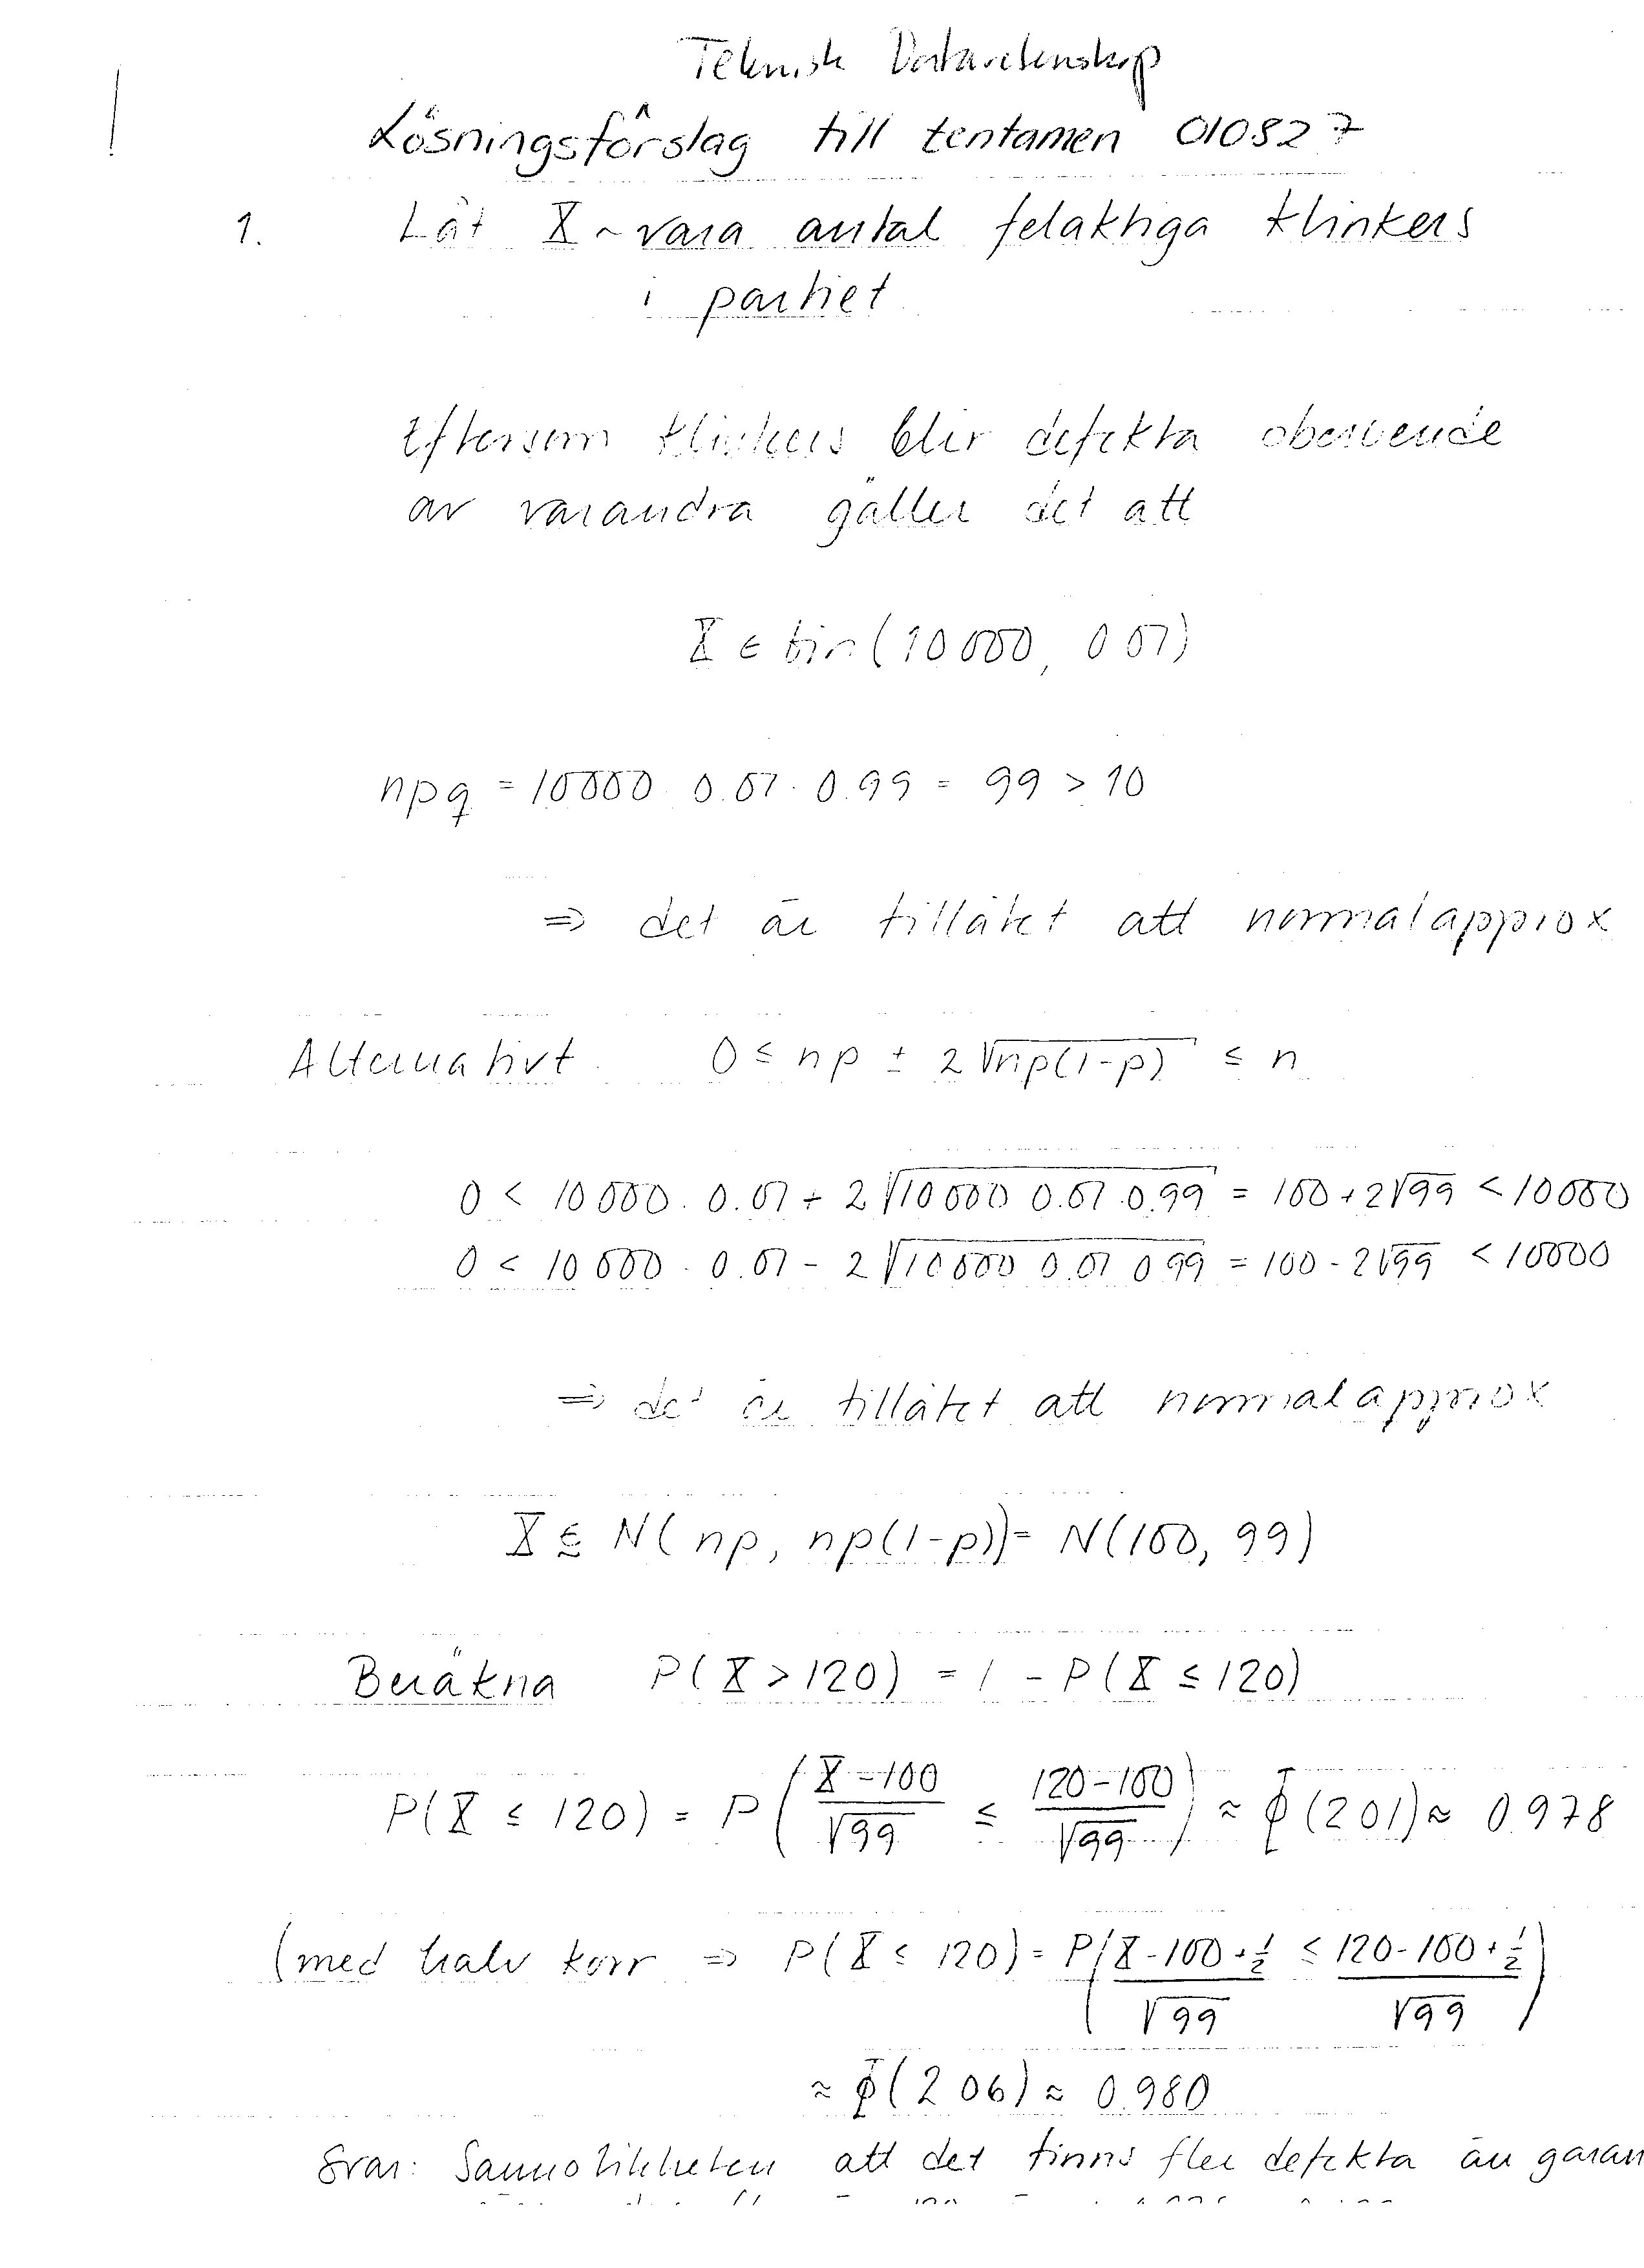 Teknisk Datavetenskap
Lösningsförslag till tentamen 010827
1. Låt X ~ vara antal felaktiga klinkers
i partiet
Eftersom klinkers blir defekta oberoende
av varandra gäller det att
X ∈ bin(10000, 0.01)
npq = 10000 · 0.01 · 0.99 = 99 > 10
⇒ det är tillåtet att normalapprox
Alternativt 0 ≤ np ± 2√np(1-p) ≤ n
0 < 10000 · 0.01 + 2√10000 0.01 · 0.99 = 100 + 2√99 < 10000
0 < 10000 · 0.01 - 2√10000 0.01 0.99 = 100 - 2√99 < 10000
⇒ det är tillåtet att normalapprox
X ∈ N(np, np(1-p)) = N(100, 99)
Beräkna P(X > 120) = 1 - P(X ≤ 120)
P(X ≤ 120) = P((X - 100)/√99 ≤ (120 - 100)/√99) ≈ Φ(2.01) ≈ 0.978
(med halv korr ⇒ P(X ≤ 120) = P((X - 100 + 1/2)/√99 ≤ (120 - 100 + 1/2)/√99)
≈ Φ(2.06) ≈ 0.980
Svar: Sannolikheten att det finns fler defekta än garan